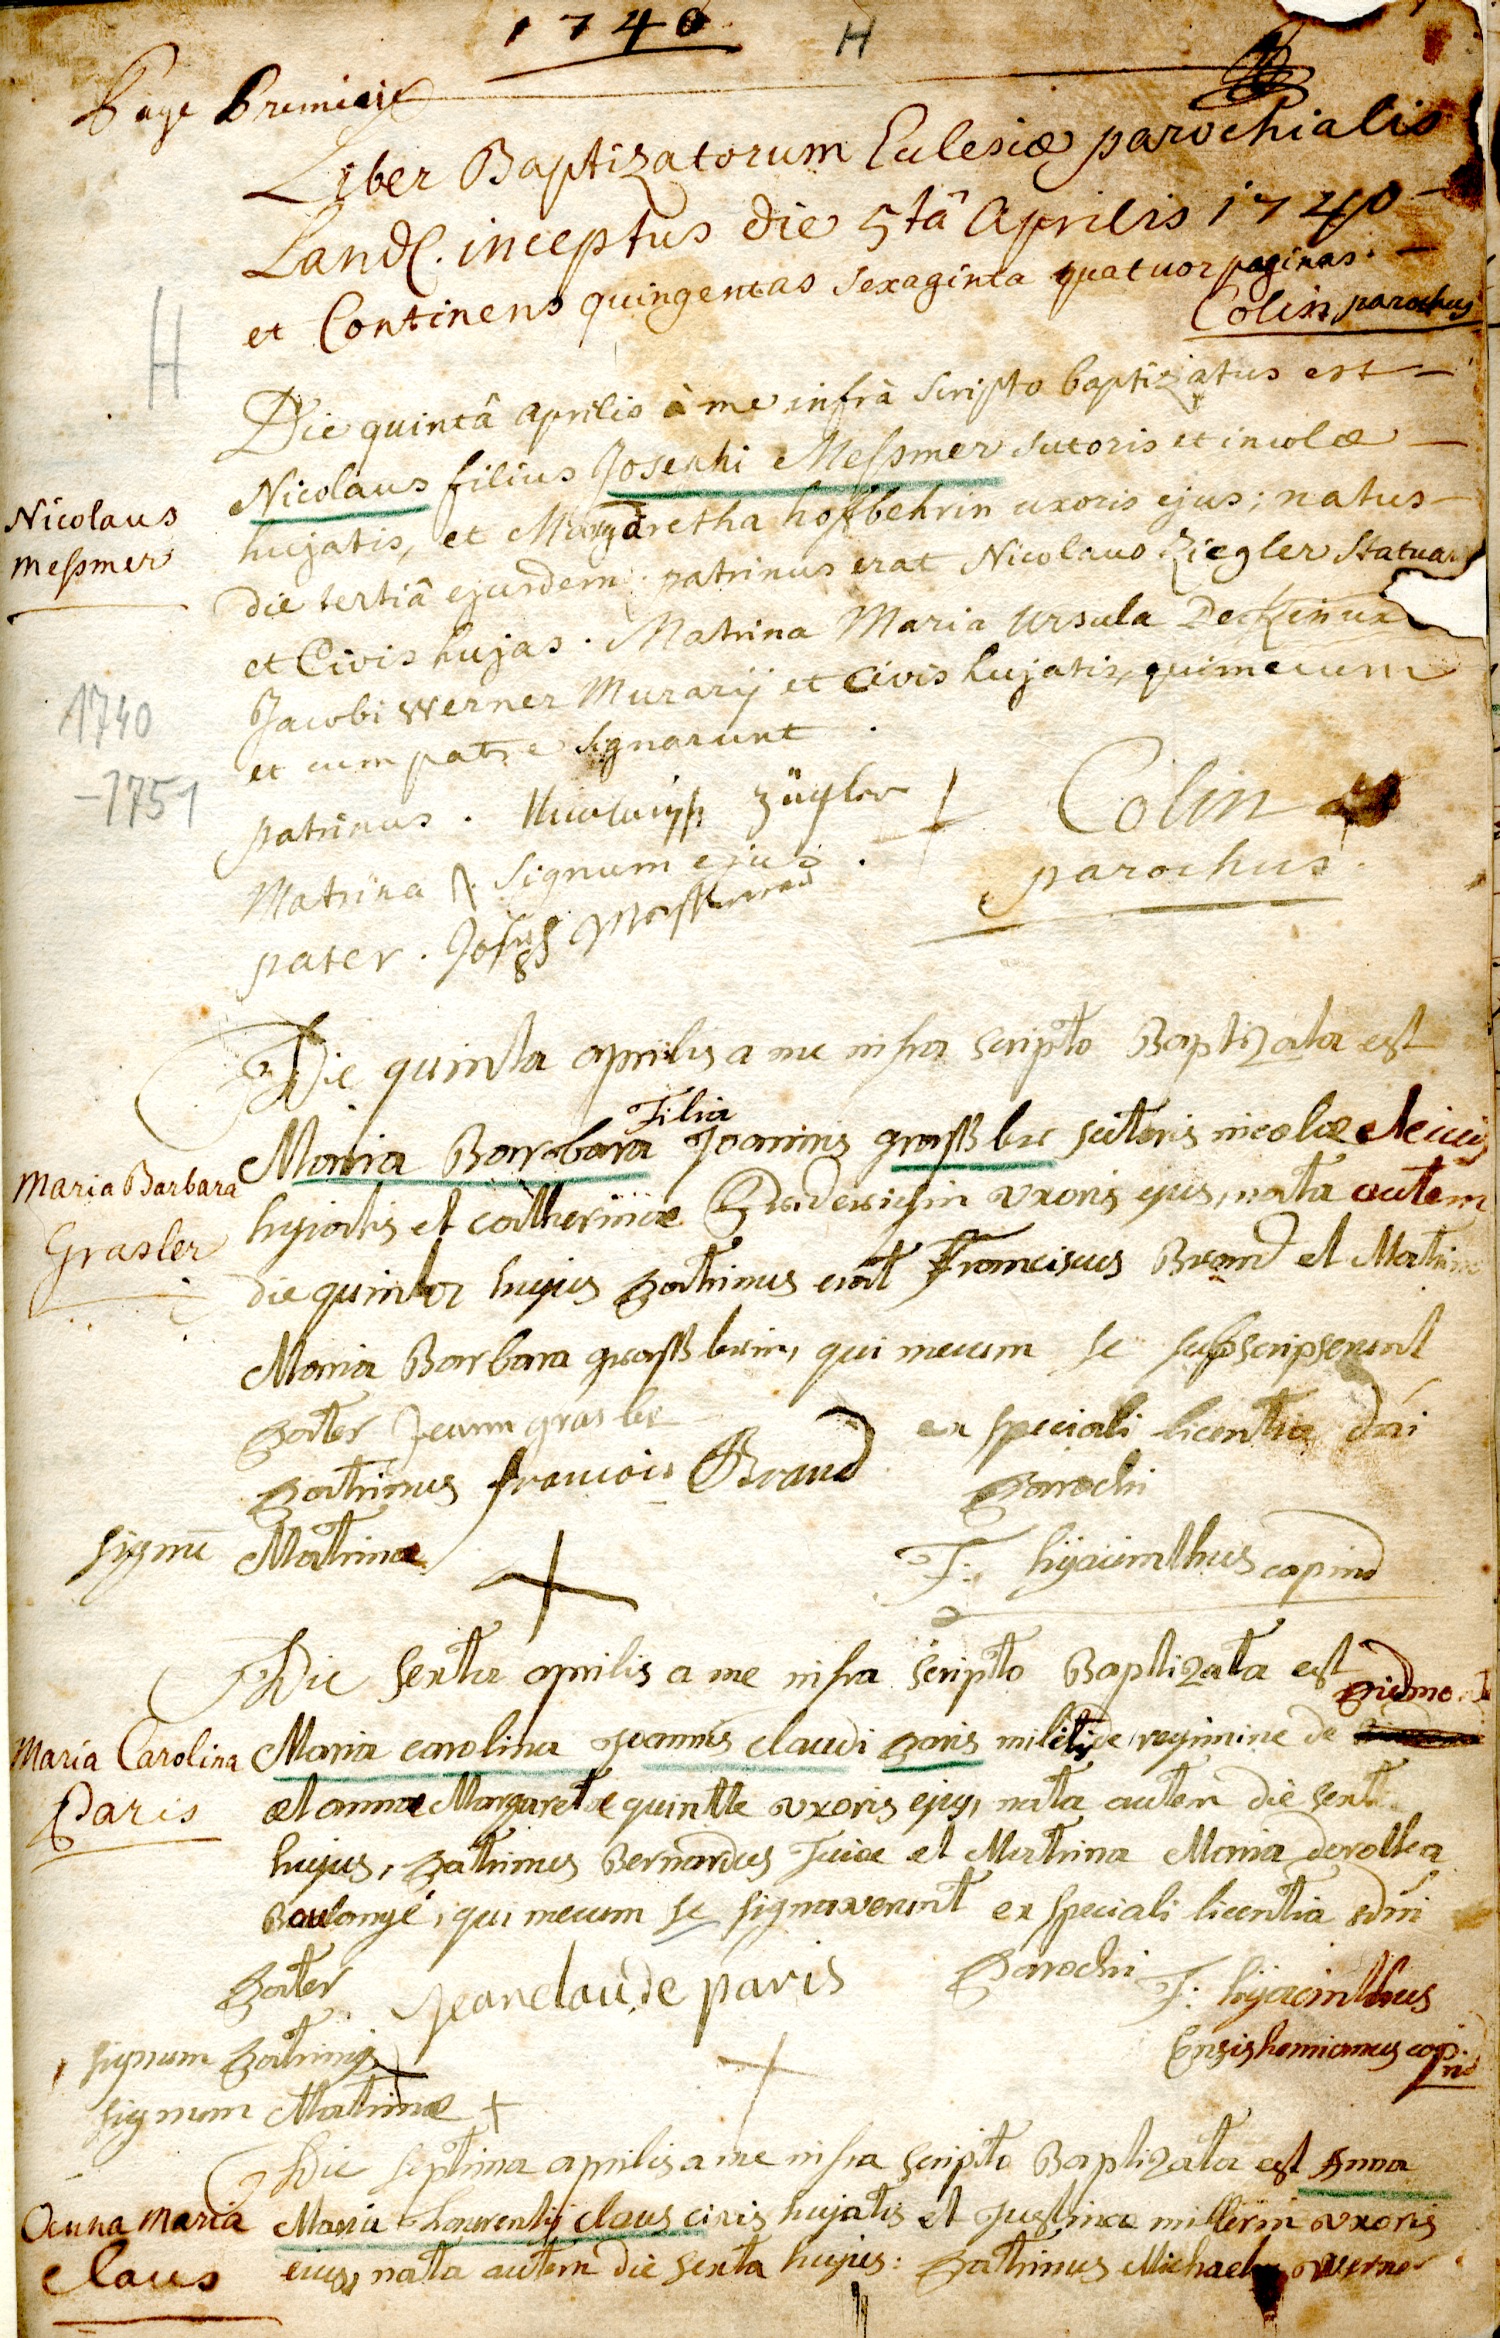 1740
H
Page Premiere
Liber Baptizatorum Eclesiæ parochialis
Land. inceptus die 5tâ Aprilis 1740
et Continens quingentas sexaginta quatuor paginas.
Colin parochus
H
Die quintâ aprilis à me infrà scripto baptizatus est
Nicolaus filius Josephi Messmer sutoris et incolæ
Nicolaus
Messmer
hujatis, et Margaretha hoffbehrin uxoris ejus; natus
die tertiâ ejusdem. patrinus erat Nicolaus Ziegler statuar
et Civis hujas. Matrina Maria Ursula Deckin ux
Jacobi Werner Murarij et Civis hujatis, qui mecum
et cum patre signarunt
1740
-1751
patrinus. Zügler
Colin
parochus.
Matrina signum ejus.
pater. Joseph
Die quinta aprilis a me infra scripto Baptizata est
Maria Barbara Filia Joannis grassler sutoris incolæ
Maria Barbara
Grasler
hujatis et catharinæ uxoris ejus, nata autem
die quinta hujus patrinus erat Franciscus Brand et Matrina
Maria Barbara grasslerin, qui mecum se subscripserunt
Pater grasler
ex speciali licentia dni
Patrinus francois Brand
Parochi
signu Matrinæ
F: hijacinthus capind
Die sexta aprilis a me infra scripto Baptizata est
Piedmont
Maria carolina Joannis claudi Paris militis de regimine de
Maria Carolina
Paris
et annæ Margaretæ quintte uxoris ejus, nata autem die sexta
hujus, Patrinus Bernardus et Matrina Maria dorothea
Boulangé, qui mecum se signaverunt ex speciali licentia dni
Parochi
Pater Jean claude paris
F: hijacinthus
Ensishemianus cap:
nd
signum Patrini
signum Matrinæ +
Die septima aprilis a me infra scripto Baptizata est Anna
Maria Laurentij claus civis hujatis et Justinæ millerin uxoris
Anna Maria
Claus
ejus, nata autem die sexta hujus: Patrinus Michael Werner